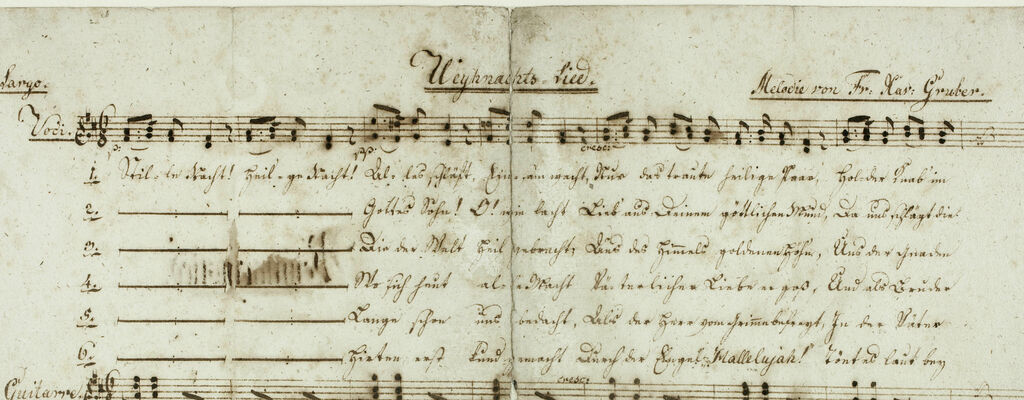 Weyhnachts-Lied.
Largo.
Melodie von Fr: Xav: Gruber.
Voci.
p: pp: cresc:
1. Stil-le Nacht! Heil-ge Nacht! Al-les schläft, Ein-sam wacht, Nur das traute heilige Paar, Hol-der Knab' im
2. Gottes Sohn! O! wie lacht Lieb' aus Deinem göttlichen Mund, Da uns schlägt die
3. Die der Welt Heil gebracht; Aus des Himmels goldenen Höhn, Uns der Gnaden
4. Wo sich heut al-le Macht Vä-terlicher Liebe ergoß, Und als Bruder
5. Lange schon uns bedacht, Als der Herr vom Grimme befreyt, In der Väter
6. Hirten erst kund gemacht Durch der Engel Hallelujah! Tönt es laut bey
cresc:
Guitarre.